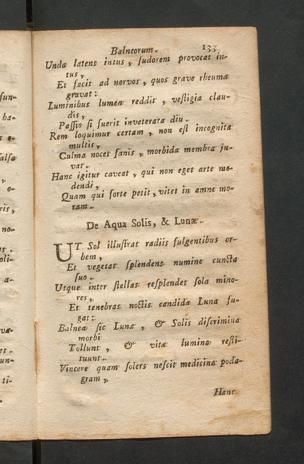 Balneorum.
133
Unda latens intus, sudorem provocat in-
tus,
Et facit ad nervos, quos grave rheuma
gravat:
Luminibus lumen reddis, vestigia clau-
dis,
Passio si fuerit inveterata diu.
Rem loquimur certam, non est incognita
multis,
Culma nocet sanis, morbida membra ju-
vat.
Hanc igitur caveat, qui non eget arte me-
dendi,
Quam qui forte petit, vitet in amne mo-
ram.
De Aqua Solis, & Lunæ.
UT Sol illustrat radiis fulgentibus or-
bem,
Et vegetat splendens numine cuncta
suo.
Utque inter stellas resplendet sola mino-
res,
Et tenebras noctis candida Luna fu-
gat:
Balnea sic Lunæ, & Solis discrimina
morbi
Tollunt, & vitæ lumina resti-
tuunt.
Vincere quam solers nescit medicina poda-
gram,
Hanc